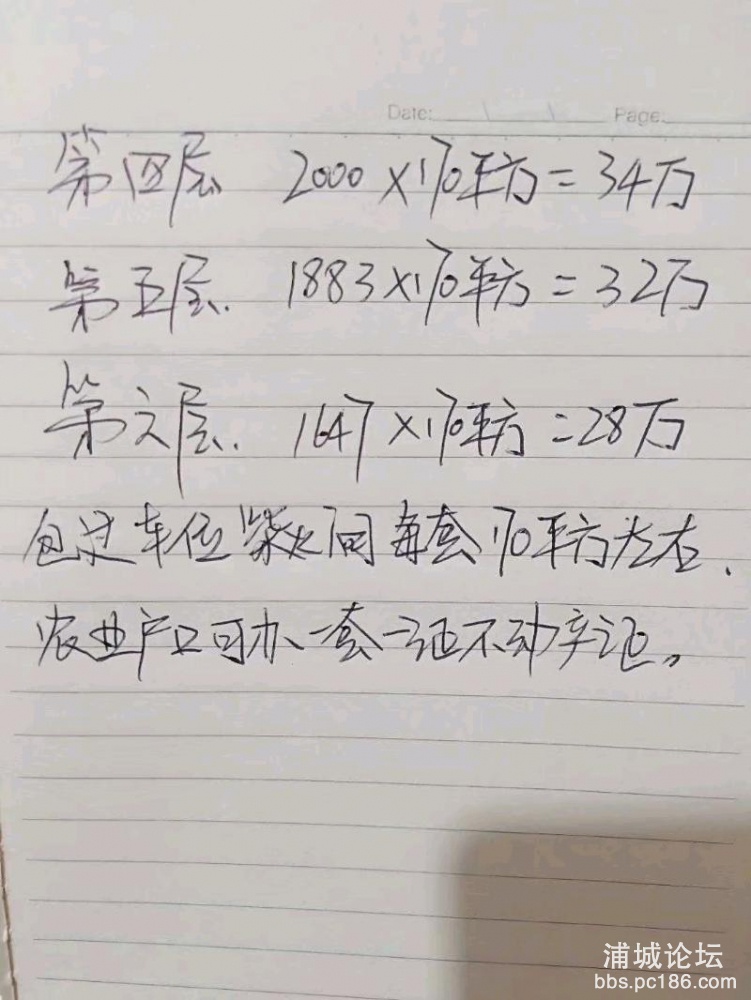 Date: \ \ Page:
第四层 2000×170平方=34万
第五层. 1883×170平方=32万
第六层. 1647×170平方=28万
包过车位柴火间每套170平方左右.
农业户口可办一套一证不动产证。
浦城论坛
bbs.pc186.com